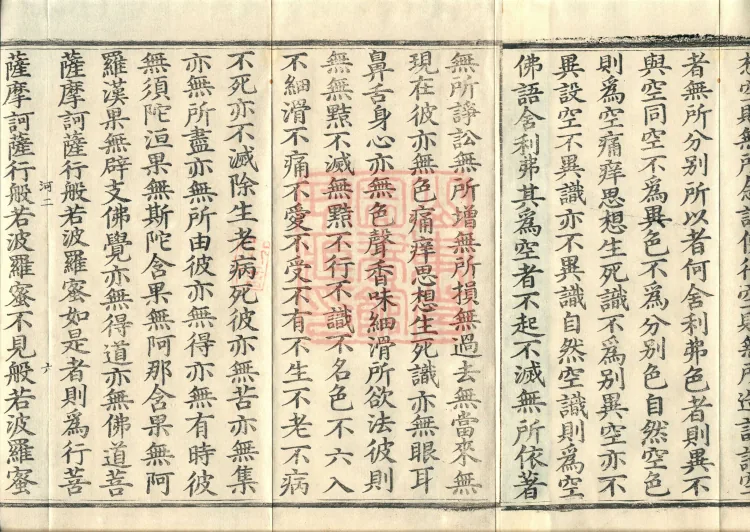 者無所分別所以者何舍利弗色者則異不
與空同空不爲異色不爲分別色自然空色
則爲空痛痒思想生死識不爲別異空亦不
異設空不異識亦不異識自然空識則爲空
佛語舍利弗其爲空者不起不滅無所依著
無所諍訟無所增無所損無過去無當來無
現在彼亦無色痛痒思想生死識亦無眼耳
鼻舌身心亦無色聲香味細滑所欲法彼則
無無黠不滅無黠不行不識不名色不六入
不細滑不痛不愛不受不有不生不老不病
不死亦不滅除生老病死彼亦無苦亦無集
亦無所盡亦無所由彼亦無得亦無有時彼
無須陀洹果無斯陀含果無阿那含果無阿
羅漢果無辟支佛覺亦無得道亦無佛道菩
薩摩訶薩行般若波羅蜜如是者則爲行菩
河二 六
薩摩訶薩行般若波羅蜜不見般若波羅蜜